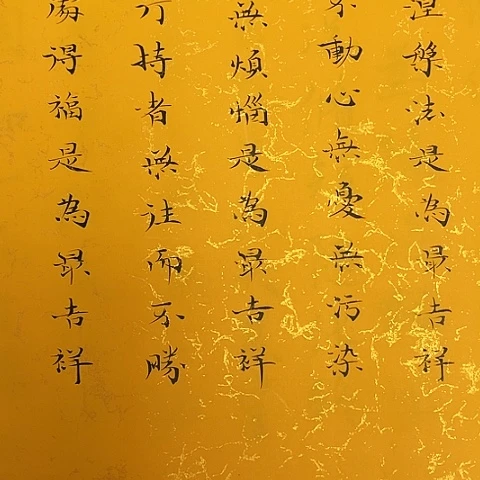 涅槃法是為最吉祥
不動心無憂無污染
無煩惱是為最吉祥
行持者無往而不勝
處得福是為最吉祥